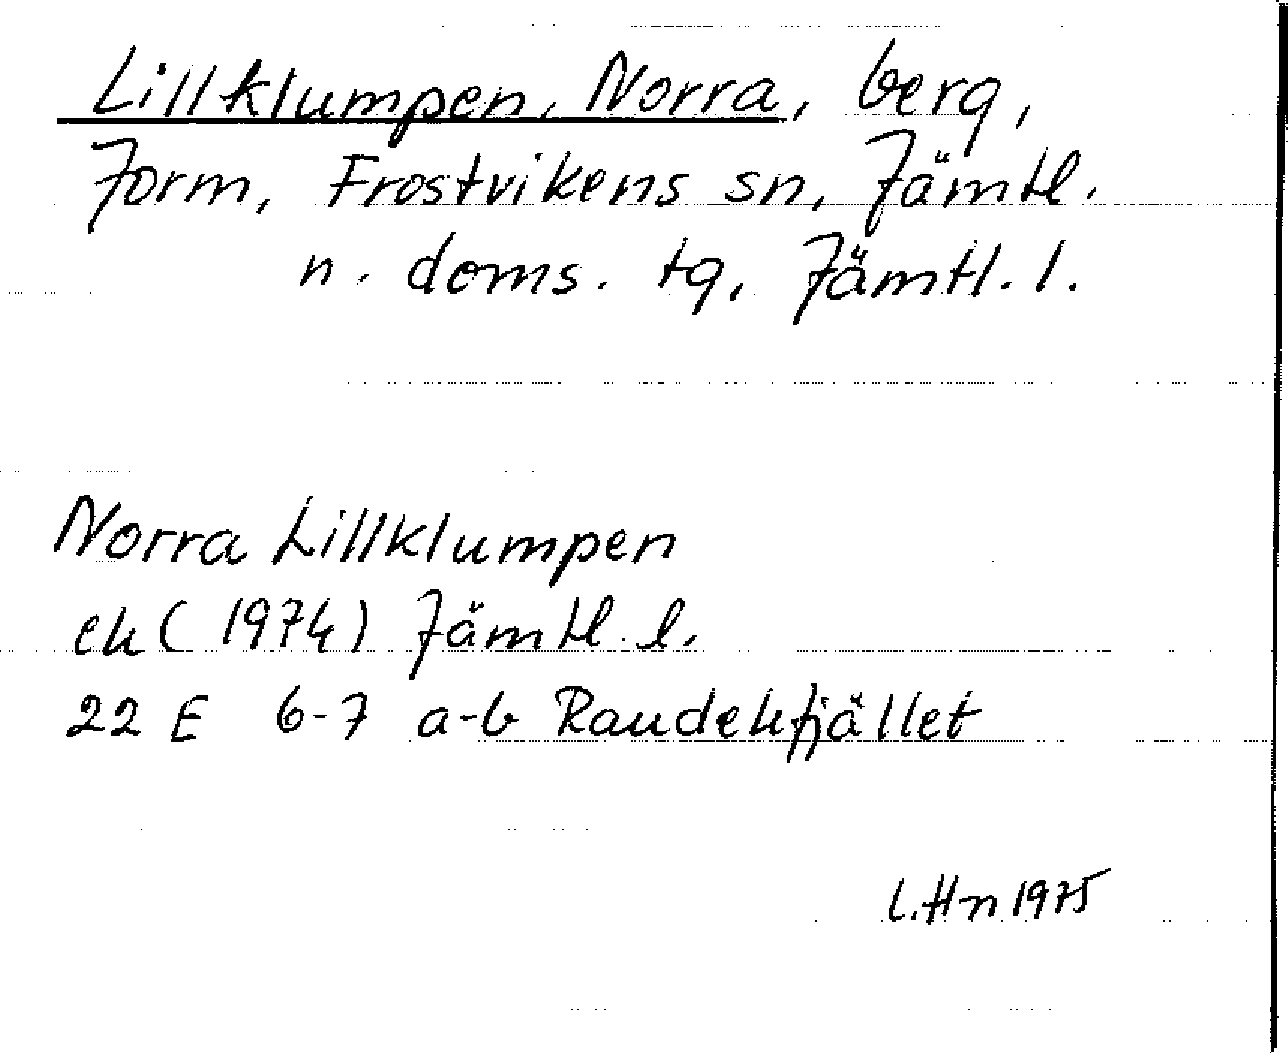 Lillklumpen, Norra, berg,
Jorm, Frostvikens sn, Jämtl.
n. doms. tg, Jämtl. l.
Norra Lillklumpen
ek (1974) Jämtl. l.
22 E 6-7 a-b Raudekfjället
L.Hn 1975